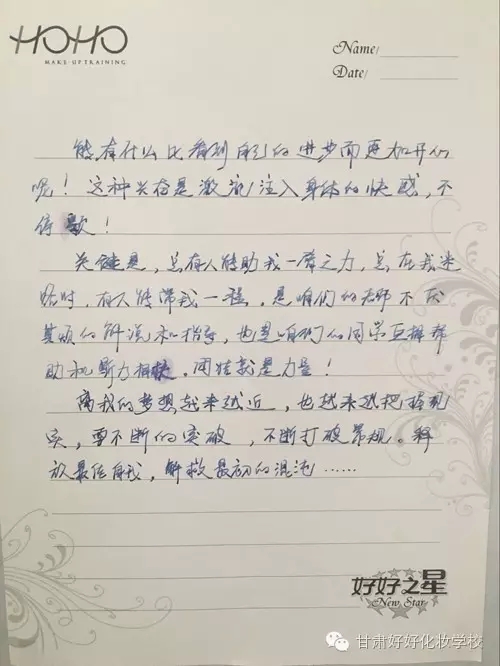 HOHO
MAKE-UP TRAINING
Name/
Date/
能有什么比看到自己的进步而更加开心
呢！这种兴奋是激流注入身体的快感，不
停歇！
关键是，总有人能助我一臂之力，总在我迷
路时，有人能带我一程，是咱们的老师不厌
其烦的解说和指导，也是咱们的同学互相帮
助和努力 团结就是力量！
离我的梦想越来越近，也越来越把握现
实，要不断的突破，不断打破常规。释
放最佳自我，解救最初的混沌……
好好之星
New Star
甘肃好好化妆学校